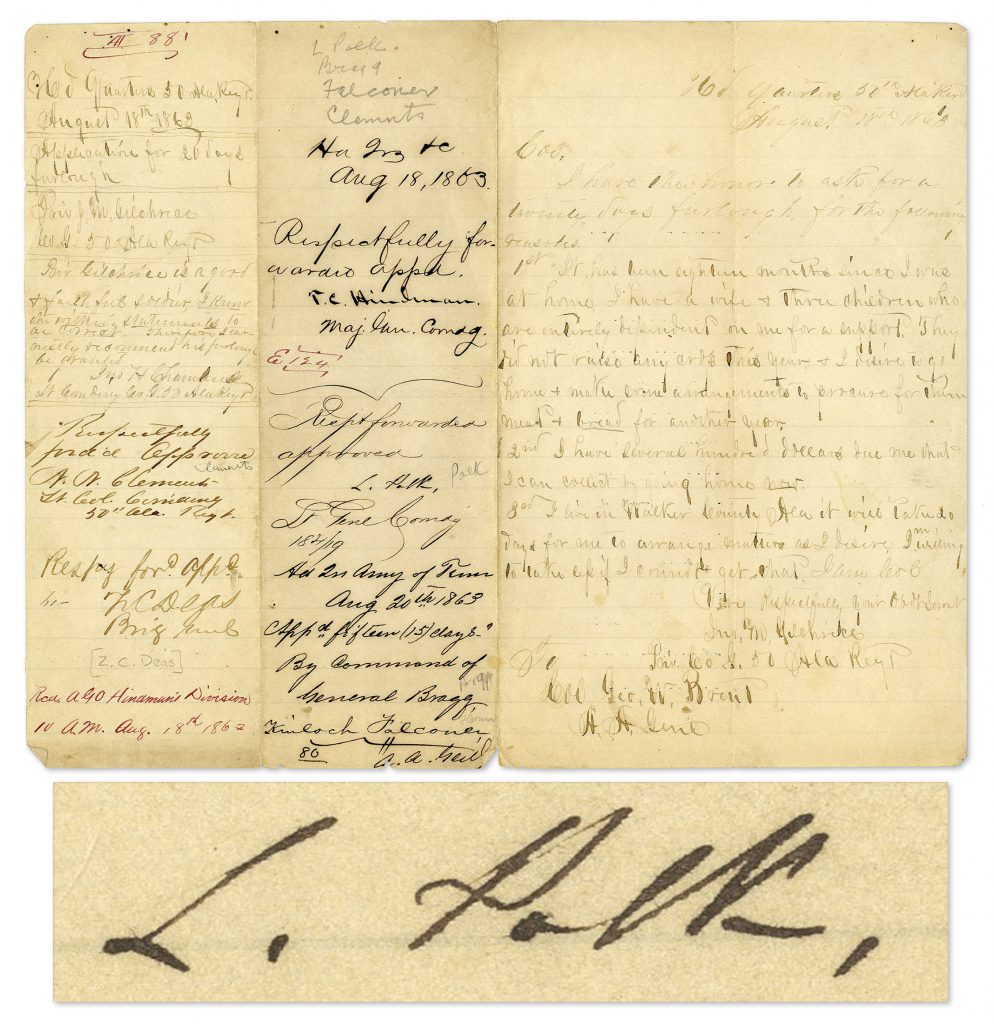 881
Hd Quarters 50 Ala, Regt.
August 18th 1863
Application for 20 days
furlough
Priv J, M, Gilchrice
Co. G. 50 Ala Regt
Priv Gilchrice is a good
& faithful Soldier I know
his statements to
be
recomment his furlough
be granted
H Chambers
Lt Comding Co. G. 50 Ala Regt
Respectfully
Approve
Clements
N. N. Clements
Lt. Col. Comding
50th Ala. Regt.
for'd app'd
Z C Deas
Brig
[Z. C. Deas]
Rcd AGO Hindman's Division
10 A.M. Aug. 18th 1863
L Polk.
Brigg
Falconer
Clements
Hd Qrs &c
Aug 18, 1863.
Respectfully for-
warded appd.
T. C. Hindman.
Maj. Gen. Comdg.
E 124
Respt forwarded
approved
Polk
L. Polk,
Lt Genl Comdg
Hd Qrs Army of Tenn
Aug 20th 1863
App'd fifteen (15) days
By Command of
General Bragg
Bragg
Kinloch Falconer
86
A. A. Genl,
Hd Quarters 50th Ala Regt
August 18th 1863
Col.
I have the honor to ask for a
twenty days furlough for the following
reasons.
1st It has been eighteen months since I was
at home I have a wife & three children who
are entirely dependent on me for a support. They
did not raise any this year & I desire to go
home & make some arrangements to procure for them
meat & bread for another year
2nd I have several hundred dollars due me that
I can collect by going home now
3rd I live in Walker County Ala it will take 20
days for me to arrange matters as I desire I willing
to take if I cannot get that I am Col
Very Respectfully your Obdt Servt
M Gilchrice
To Priv Co G. 50 Ala Regt
Col Geo, W. Brent
A. A. Genl
L. Polk,